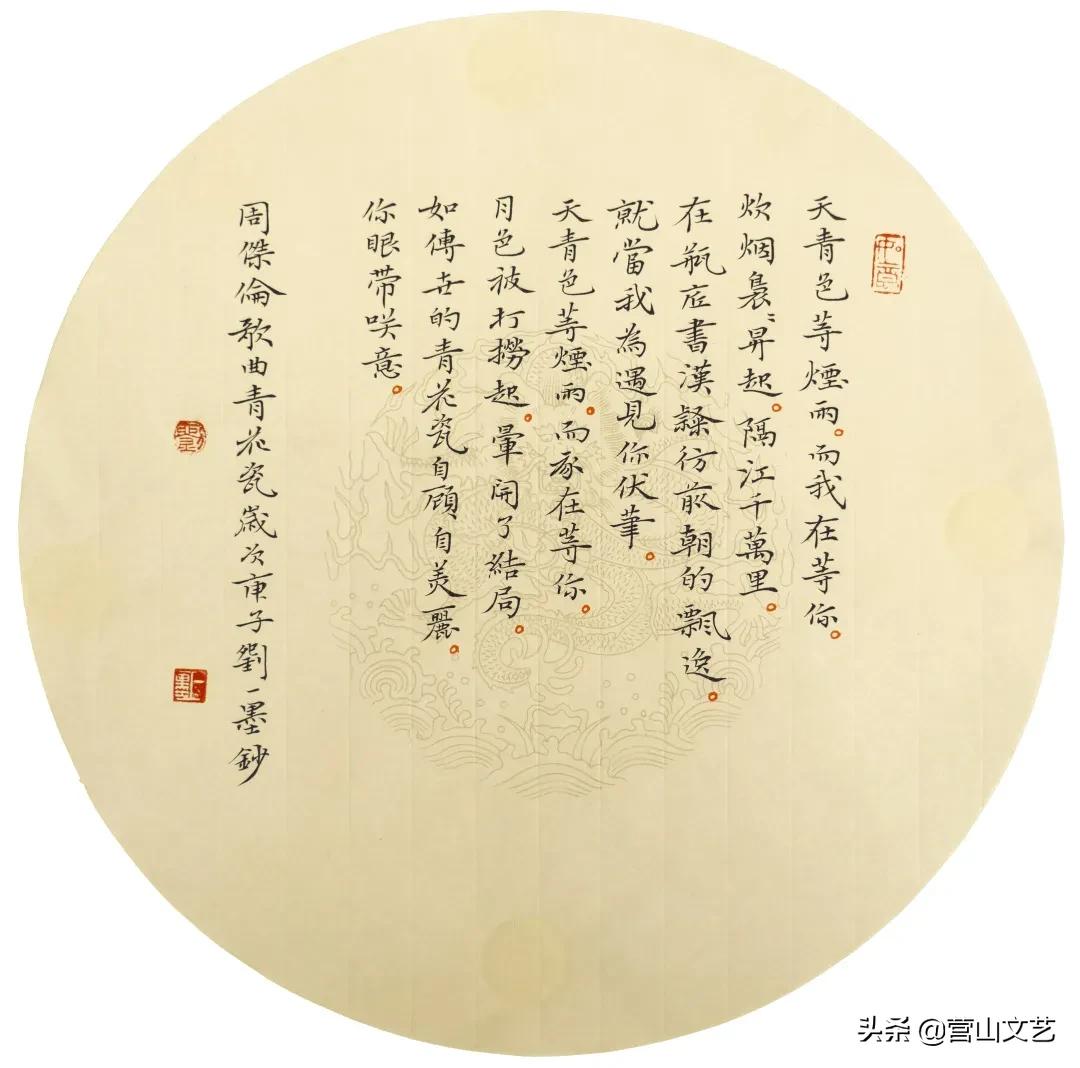 天青色等煙雨。而我在等你。
炊烟裊〻昇起。隔江千萬里。
在瓶底書漢隸仿前朝的飄逸。
就當我為遇見你伏筆。
天青色等煙雨。而我在等你。
月色被打撈起。暈開了結局。
如傳世的青花瓷自顧自美麗。
你眼带咲意。
周傑倫歌曲青花瓷歲次庚子劉一墨鈔
头条 @营山文艺